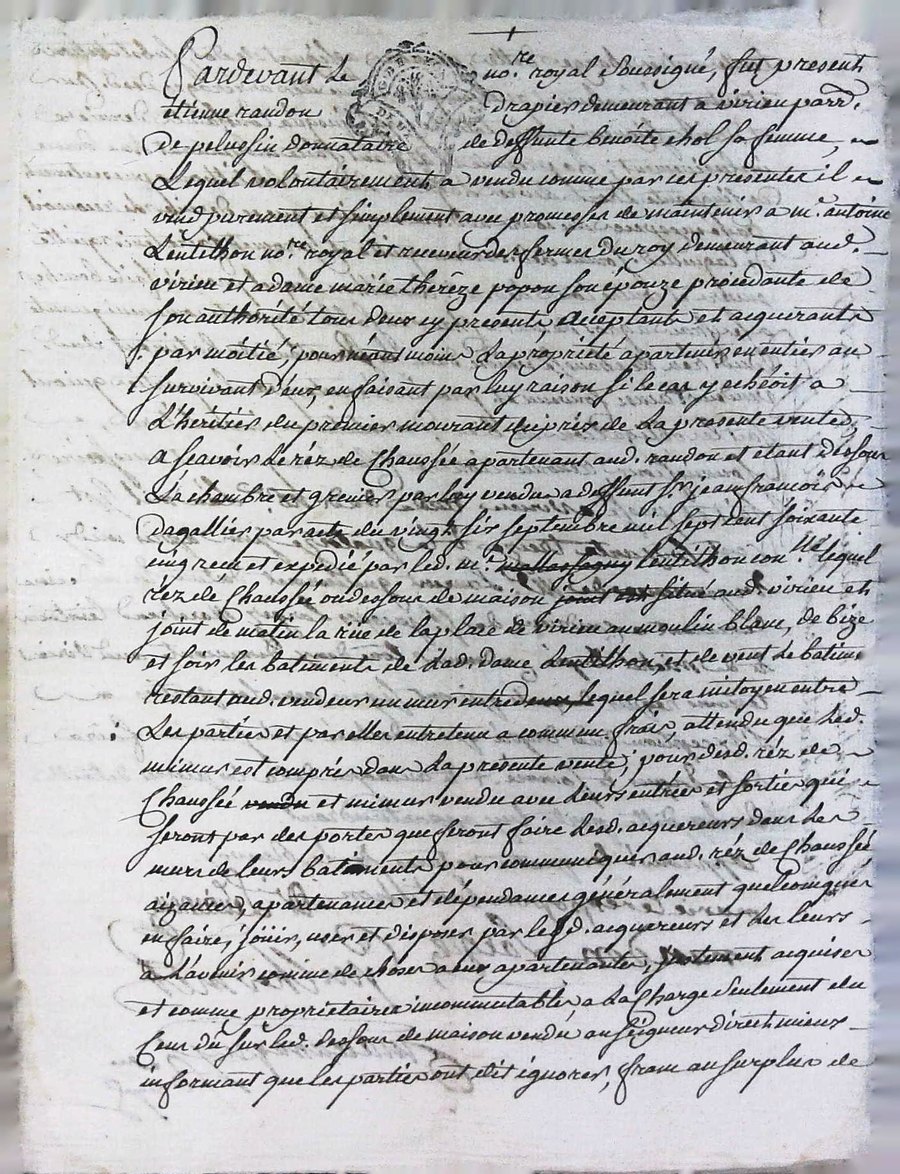 Pardevant Le no.re royal soussigné, fut present
étienne randon drapier demeurant a virieu parr.
de pelussin donnataire de deffunte benoite chol sa femme,
Lequel volontairement a vendu comme par ces presentes il
vend purement et simplement avec promesses de maintenir a m.e antoine
Lentilhon no.re royal et receveur des fermes du roy demeurant aud.
virieu et a dame marie thérèze popon son épouze procedante de
son authorité tous deux cy presents aceptants et acquerants
par moitié, pour néant moins La propriété apartenir en entier au
survivant d'eux, en faisant par luy raison si le cas y echéoit a
L'héritier du premier mourant du prix de La presente vente,
a scavoir Le réz de Chaussée apartenant aud. randon et étant dessous
La chambre et grenier par luy vendu a deffunt s.r jean francois
dagallier par acte du vingt six septembre mil sept cent soixante
cinq receu et expedié par led. m.e Lentilhon lequel
réz de Chaussée ou dessous de maison situé aud. virieu et
joint de matin la rue de la place de virieu au moulin blanc, de bize
et soir les batiments de Lad. dame Lentilhon, et de vent Le batim.
restant aud. vendeur un mur entredeux, lequel sera mitoyen entre
Les parties et par elles entretenu a commun frais, attendu que Led.
mimur est compris dans La presente vente, pour desd. réz de
Chaussée vendu et mimur vendu avec Leurs entrées et sorties qui
seront par des portes que feront faire Lesd. acquereurs dans Les
murs de leurs batiments pour communiquer aud. réz de Chaussée
aizances, apartenances et dépendances généralement quelconques
en faire, jöuir, user et disposer par lesd. acquereurs et Les Leurs
a L'avenir comme de choses a eux apartenantes, justement acquises
et comme propriétaires incommutables a La Charge seulement du
Cens dû sur Led. dessous de maison vendu au seigneur direct mieux
informant que les parties ont dit ignorer, franc au surplus de